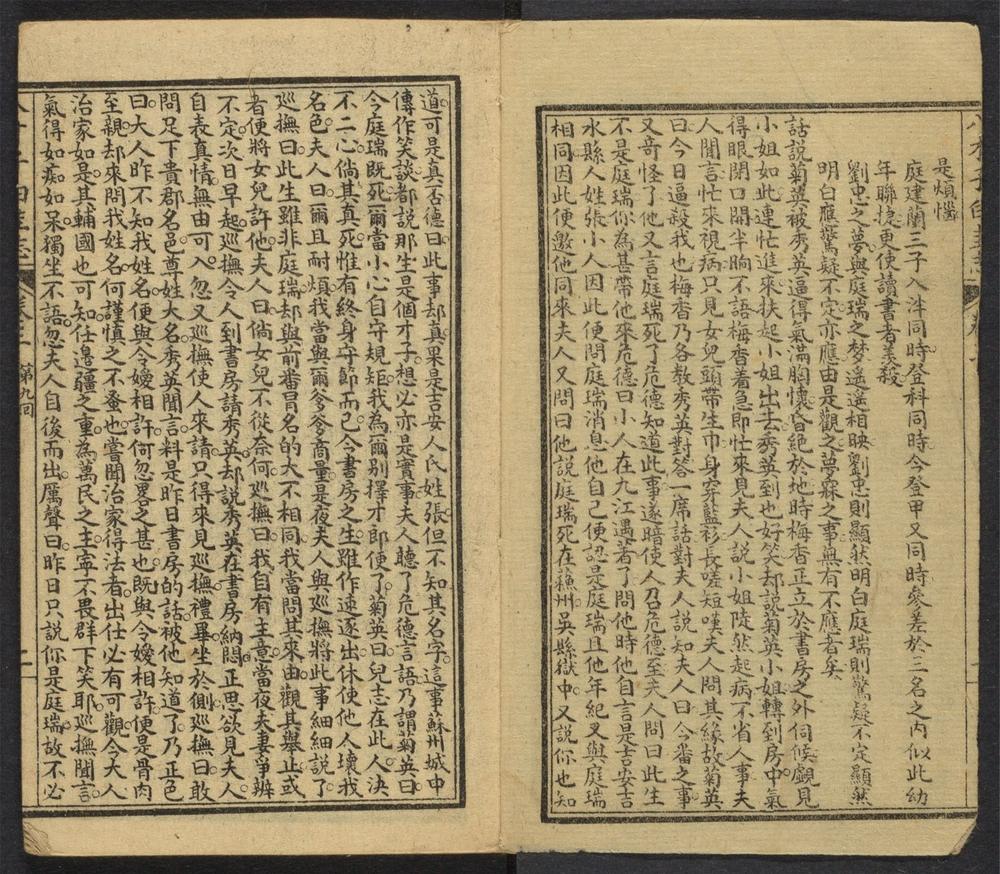 是煩惱
庭建蘭三子入泮同時登科同時今登甲又同時參差於三名之內似此幼
年聯捷更使讀書者羨殺
劉忠之夢與庭瑞之梦遥遥相映劉忠則顯然明白庭瑞則驚疑不定顯然
明白應驚疑不定亦應由是觀之夢寐之事無有不應者矣
話說菊英被秀英逼得氣滿胸懷昏絕於地時梅香正立於書房之外伺候覷見
小姐如此連忙進來扶起小姐出去秀英到也好笑却説菊英小姐轉到房中氣
得眼閉口開半晌不語梅香着急即忙來見夫人說小姐陡然起病不省人事夫
人聞言忙來視病只見女兒頭帶生巾身穿藍衫長嗟短嘆夫人問其緣故菊英
曰今日逼殺我也梅香乃各教秀英對答一席話對夫人說知夫人曰今番之事
又奇怪了他又言庭瑞死了危德知道此事遂暗使人召危德至夫人問曰此生
不是庭瑞你為甚帶他來危德曰小人在九江遇著了問他時他自言是吉安吉
水縣人姓張小人因此便問庭瑞消息他自己便認是庭瑞且他年紀又與庭瑞
相同因此便邀他同來夫人又問曰他說庭瑞死在蘓州吳縣獄中又說你也知
道可是真否德曰此事却真果是吉安人氏姓張但不知其名字這事蘇州城中
傳作笑談都説那生是個才子想必亦是實事夫人聽了危德言語乃謂菊英曰
今庭瑞既死爾當小心自守規矩我為爾別擇才郎便了菊英曰兒志在此人決
不二心倘其真死惟有終身守節而已今書房之生雖作速逐出休使他人壞我
名色夫人曰爾且耐煩我當與爾爹爹商量是夜夫人與巡撫將此事細細説了
巡撫曰此生雖非庭瑞却與前番冒名的大不相同我當問其來由觀其舉止或
者便將女兒許他夫人曰倘女兒不從奈何巡撫曰我自有主意當夜夫妻爭辨
不定次日早起巡撫令人到書房請秀英却説秀英在書房納悶正思欲見夫人
自表真情無由可入忽又巡撫使人來請只得來見巡撫禮畢坐於側巡撫曰敢
問足下貴郡名邑尊姓大名秀英聞言料是昨日書房的話被他知道了乃正色
曰大人昨不知我姓名便與令嬡相許何忽畧之甚也既與令嬡相許便是骨肉
至親却來問我姓名何謹慎之不蚤也嘗聞治家得法者出仕必有可觀今大人
治家如是其輔國也可知任邊疆之重為萬民之主寜不畏群下笑耶巡撫聞言
氣得如痴如呆獨坐不語忽夫人自後而出厲聲曰昨日只説你是庭瑞故不必
第九回